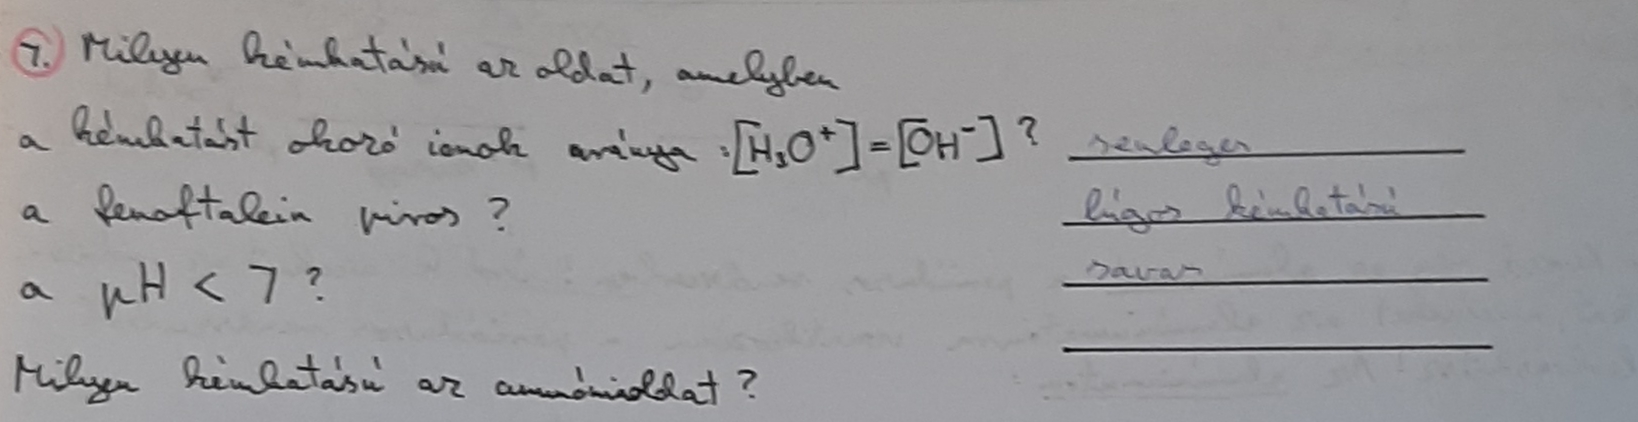 7. Milyen kémhatású az oldat, amelyben
a kémhatást okozó ionok aránya : [H₃O⁺] = [OH⁻] ? semleges
a fenoftalein piros ? lúgos kémhatású
a pH < 7 ? savas
Milyen kémhatású az ammóniaoldat ?